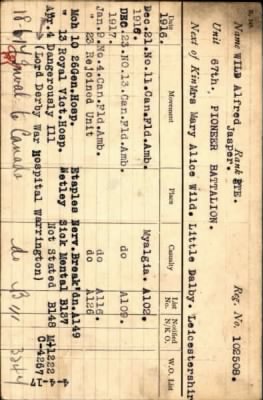 Name WILD Alfred Jasper. Rank PTE. Reg. No. 102508.
Unit 67th. PIONEER BATTALION.
Next of Kin Mrs Mary Alice Wild. Little Dalby. Leicestershire
Date Movement Place Casualty List No. Notified N/K O. W.O. List
1916.
Dec. 21. No. 11. Can. Fld. Amb. Myalgia. A102.
1916.
DEC. 23. NO. 13. Can. Fld. Amb. do A109.
1917.
Jan. 9. No. 4. Can. Fld. Amb. do A116.
" 23 Rejoined Unit do A126
Mch 10 26 Gen. Hosp. Etaples Nerv. Break'dn. A149
" 13 Royal Vict. Hosp. Netley Sick Mental B137
Apr. 4 Dangerously Ill Not Stated B148 M1222 C-4257
(Lord Derby War Hospital Warrington) 4-4-17
to Canada do